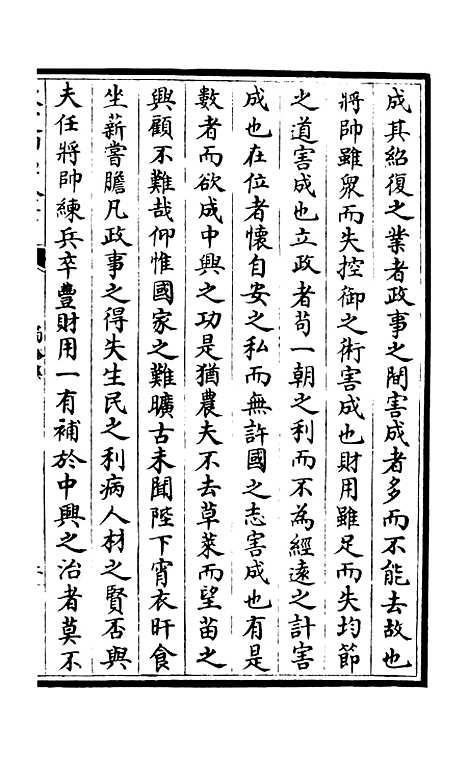 成其紹復之業者政事之間害成者多而不能去故也
將帥雖衆而失控御之術害成也財用雖足而失均節
之道害成也立政者苟一朝之利而不為經遠之計害
成也在位者懷自安之私而無許國之志害成也有是
數者而欲成中興之功是猶農夫不去草萊而望苗之
興顧不難哉仰惟國家之難曠古未聞陛下宵衣旰食
坐薪嘗膽凡政事之得失生民之利病人材之賢否與
夫任將帥練兵卒豐財用一有補於中興之治者莫不